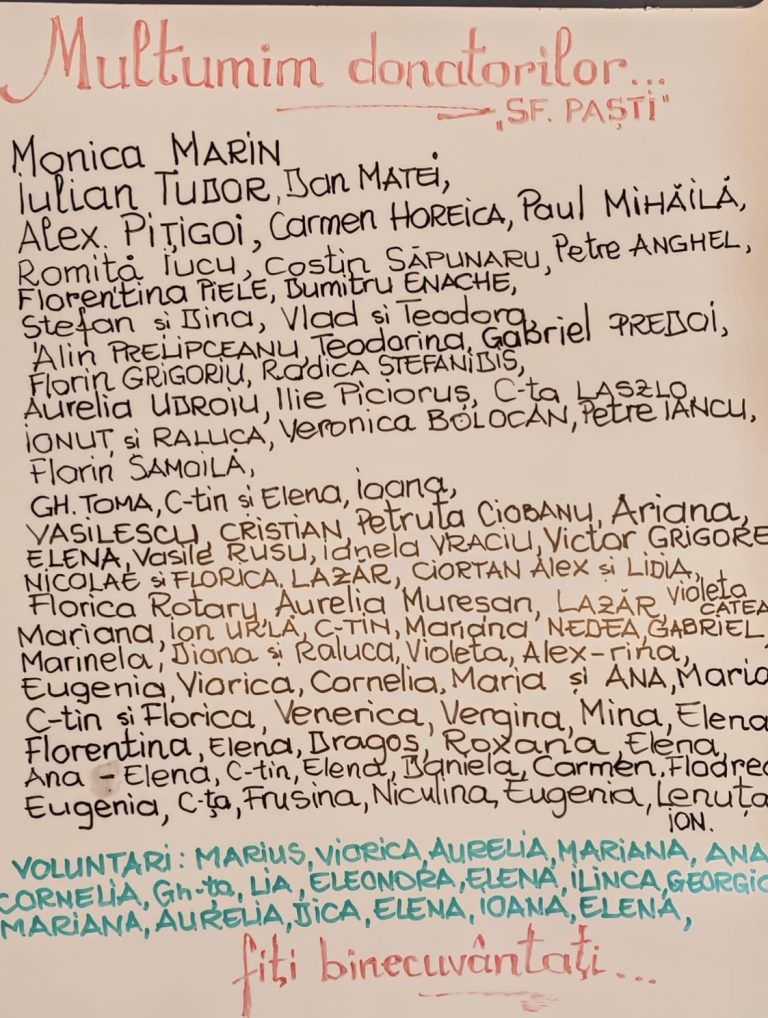 Multumim donatorilor...
"SF. PAȘTI"
Monica MARIN
Iulian TUDOR, Dan MATEI,
Alex. PIȚIGOI, Carmen HOREICA, Paul MIHĂILĂ,
Romită Iucu, Costin SĂPUNARU, Petre ANGHEL,
Florentina PIELE, Dumitru ENACHE,
Stefan si Dina, Vlad si Teodora,
Alin PRELIPCEANU, Teodorina, Gabriel PREDOI,
Florin GRIGORIU, Rodica ȘTEFANIDIS,
Aurelia UDROIU, Ilie Picioruș, C-ta LASZLO,
IONUȚ și RALUCA, Veronica BOLOCAN, Petre IANCU,
Florin SAMOILĂ,
GH. TOMA, C-tin si Elena, Ioana,
VASILESCU CRISTIAN, Petruta CIOBANU, Ariana,
ELENA, Vasile RUSU, Ianela VRACIU, Victor GRIGORE
NICOLAE și FLORICA, LAZĂR, CIORTAN Alex și LIDIA,
Florica Rotary, Aurelia Muresan, LAZĂR, Violeta
CATEA
Mariana, Ion URLĂ, C-TIN, Mariana NEDEA, GABRIEL
Marinela, Diana și Raluca, Violeta, Alex-rina,
Eugenia, Viorica, Cornelia, Maria și ANA, Maria
C-tin și Florica, Venerica, Vergina, Mina, Elena
Florentina, Elena, Dragoș, Roxana, Elena,
Ana - Elena, C-tin, Elena, Daniela, Carmen, Floare
Eugenia, C-ța, Frusina, Niculina, Eugenia, Lenuța
ION.
VOLUNTARI: MARIUS, VIORICA, AURELIA, MARIANA, ANA
CORNELIA, Gh-ța, LIA, ELEONORA, ELENA, ILINCA, GEORGIC
MARIANA, AURELIA, DICA, ELENA, IOANA, ELENA,
fiți binecuvântați...